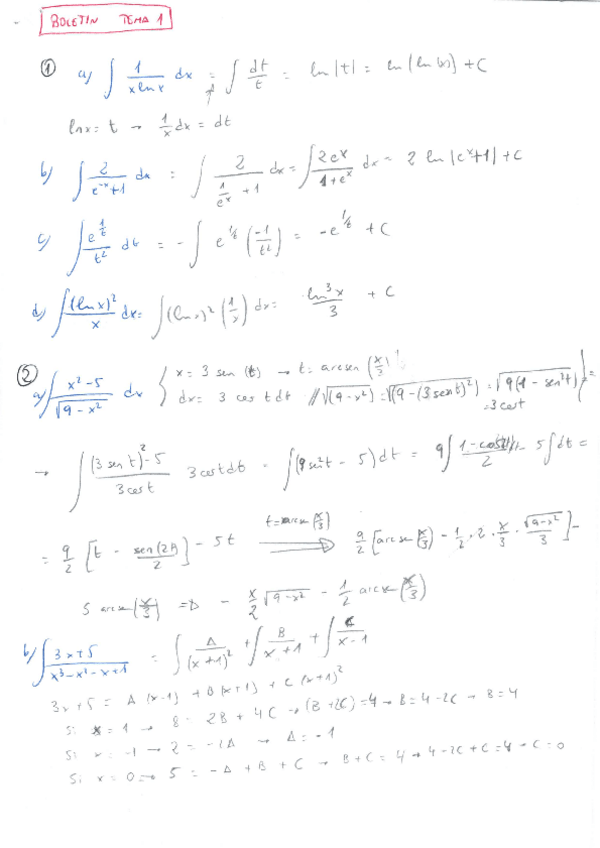 BOLETIN TEMA 1
① a) ∫ 1/(x ln x) dx = ∫ dt/t = ln|t| = ln(ln(x)) + C
ln x = t → 1/x dx = dt
b) ∫ 2/(e^-x + 1) dx = ∫ 2/(1/e^x + 1) dx = ∫ 2e^x/(1+e^x) dx = 2 ln|e^x+1| + C
c) ∫ e^(1/t)/t² dt = - ∫ e^(1/t) (-1/t²) = -e^(1/t) + C
d) ∫ (ln x)²/x dx = ∫ (ln x)² (1/x) dx = ln³x/3 + C
② a) ∫ (x²-5)/√(9-x²) dx { x = 3 sen (t) → t = arcsen (x/3)
dx = 3 cos t dt // √(9-x²) = √(9-(3sent)²) = √(9(1-sen²t)) = 3cost
→ ∫ ((3 sen t)² - 5)/(3 cos t) 3cost dt = ∫ (9 sen²t - 5) dt = 9∫ (1-cos(2t))/2 - 5∫dt =
= 9/2 [t - sen(2t)/2] - 5t t=arcsen(x/3) ⇒ 9/2 [arcsen(x/3) - 1/2 · 2 · x/3 · √(9-x²)/3] -
5 arcsen(x/3) ⇒ - x/2 √(9-x²) - 1/2 arcsen(x/3)
b) ∫ (3x+5)/(x³-x²-x+1) = ∫ A/(x+1)² + ∫ B/(x+1) + ∫ C/(x-1)
3x+5 = A(x-1) + B(x+1) + C(x+1)²
Si x = 1 → 8 = 2B + 4C → (B+2C) = 4 → B = 4-2C → B = 4
Si x = -1 → 2 = -2A → A = -1
Si x = 0 → 5 = -A + B + C → B + C = 4 → 4-2C + C = 4 → C = 0